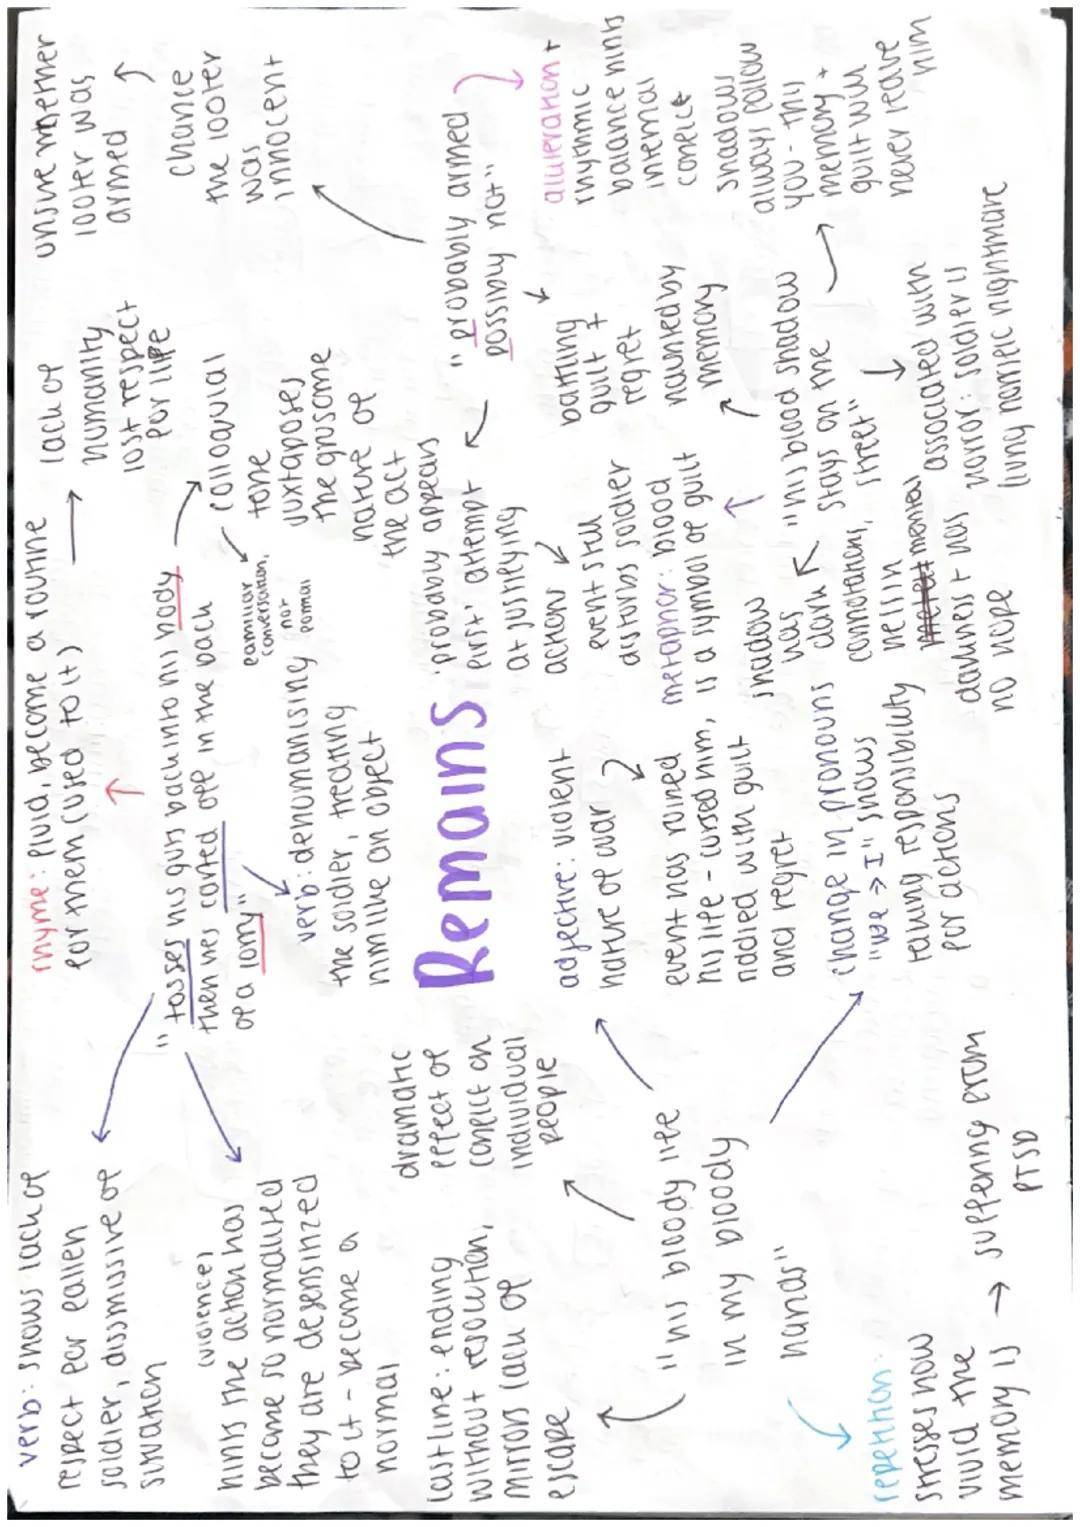 verb: shows lack of
respect for fallen
soldier, dismissive of
situation
rhyme: fluid, become a routine
for them (used to it)
lack of
humanity
lost respect
for life
unsure whether
looter was
armed
chance
the looter
was
innocent
"tosses his guts back into his body
then hes carted off in the back
of a lorry"
(violence)
hints the action has
become so normalised
they are desensitized
to it - become a
normal
verb: dehumanising
the soldier, treating
him like an object
colloquial
tone
juxtaposes
the gruesome
nature of
the act
familiar
conversation,
not
formal
Remains
"probably armed
possibly not"
'probably' appears
first: attempt
at justifying
actions
event still
disturbs soldier
battling
guilt +
regret
alliteration +
rhythmic
balance hints
internal
conflict
dramatic
effect of
conflict on
individual
people
last line: ending
without resolution,
mirrors lack of
escape
"his bloody life
in my bloody
hands"
adjective: violent
nature of war
event has ruined
his life - cursed him,
riddled with guilt
and regret
metaphor: blood
is a symbol of guilt
haunted by
memory
"his blood shadow
stays on the
street"
shadows
always follow
you - this
memory +
guilt will
never leave
him
shadow
has
dark
connotations,
hell in
mental
darkness + has
no hope
associated with
horror: soldier is
living horrific nightmare
change in pronouns
"we → I" shows
taking responsibility
for actions
repetition:
stresses how
vivid the
memory is → suffering from
PTSD